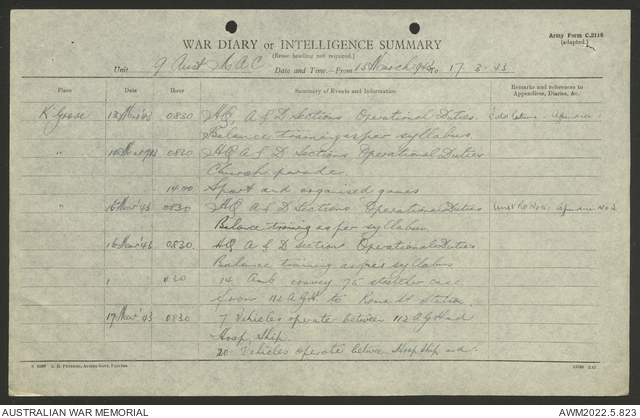 Army Form C.2118
(adapted.)
WAR DIARY or INTELLIGENCE SUMMARY
(Erase heading not required.)
Unit 9 Aust M A C Date and Time—From 13 March 943 to 17 . 3 . 43
Place Date Hour Summary of Events and Information Remarks and references to Appendices, Diaries, &c.
K'Grove 13 Mar '43 0830 HQ, A & D Sections Operational Duties
Balance training as per syllabus.
" 0830 HQ A & D Sections Operational Duties
Church parade.
1400 Sport and organised games
" 15 Mar '43 0830 HQ A & D Sections Operational Duties Unit RO No
Balance training as per syllabus
16 Mar '43 0830. HQ A & D Section Operational Duties
Balance training as per syllabus
14 Amb convoy 75 stretcher case
from 112 A.G.H. to Roma St Station.
17 Mar '43 0830 7 Vehicles operate between 112 A G H and
Hosp. Ship.
20 Vehicles operate between Hosp Ship and
A. H. Pettifer, Acting Govt. Printer.
AUSTRALIAN WAR MEMORIAL AWM2022.5.823